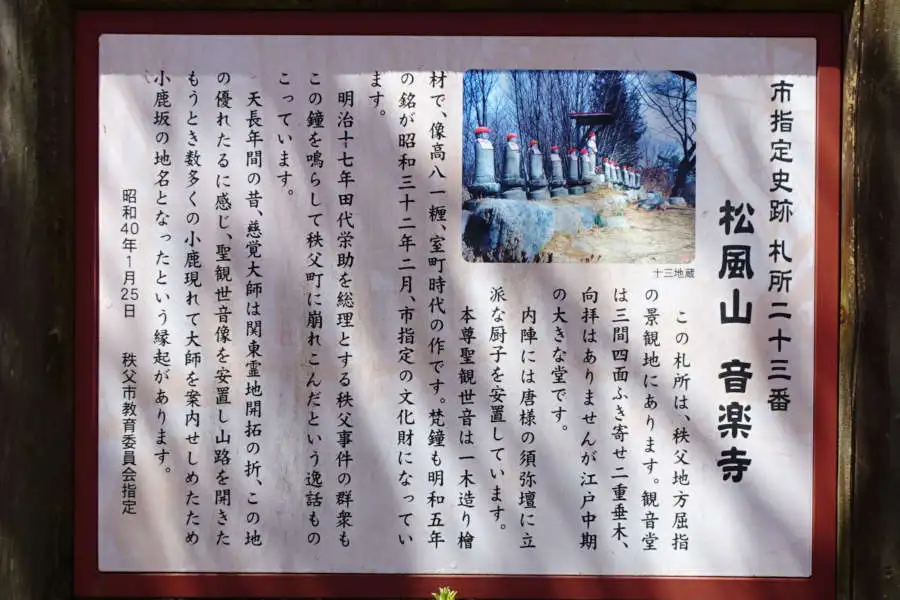 市指定史跡 札所二十三番
松風山 音楽寺
十三地蔵
この札所は、秩父地方屈指
の景観地にあります。観音堂
は三間四面ふき寄せ二重垂木、
向拝はありませんが江戸中期
の大きな堂です。
内陣には唐様の須弥壇に立
派な厨子を安置しています。
本尊聖観世音は一木造り檜
材で、像高八一糎、室町時代の作です。梵鐘も明和五年
の銘が昭和三十二年二月、市指定の文化財になってい
ます。
明治十七年田代栄助を総理とする秩父事件の群衆も
この鐘を鳴らして秩父町に崩れこんだという逸話もの
こっています。
天長年間の昔、慈覚大師は関東霊地開拓の折、この地
の優れたるに感じ、聖観世音像を安置し山路を開きた
もうとき数多くの小鹿現れて大師を案内せしめたため
小鹿坂の地名となったという縁起があります。
昭和40年1月25日 秩父市教育委員会指定